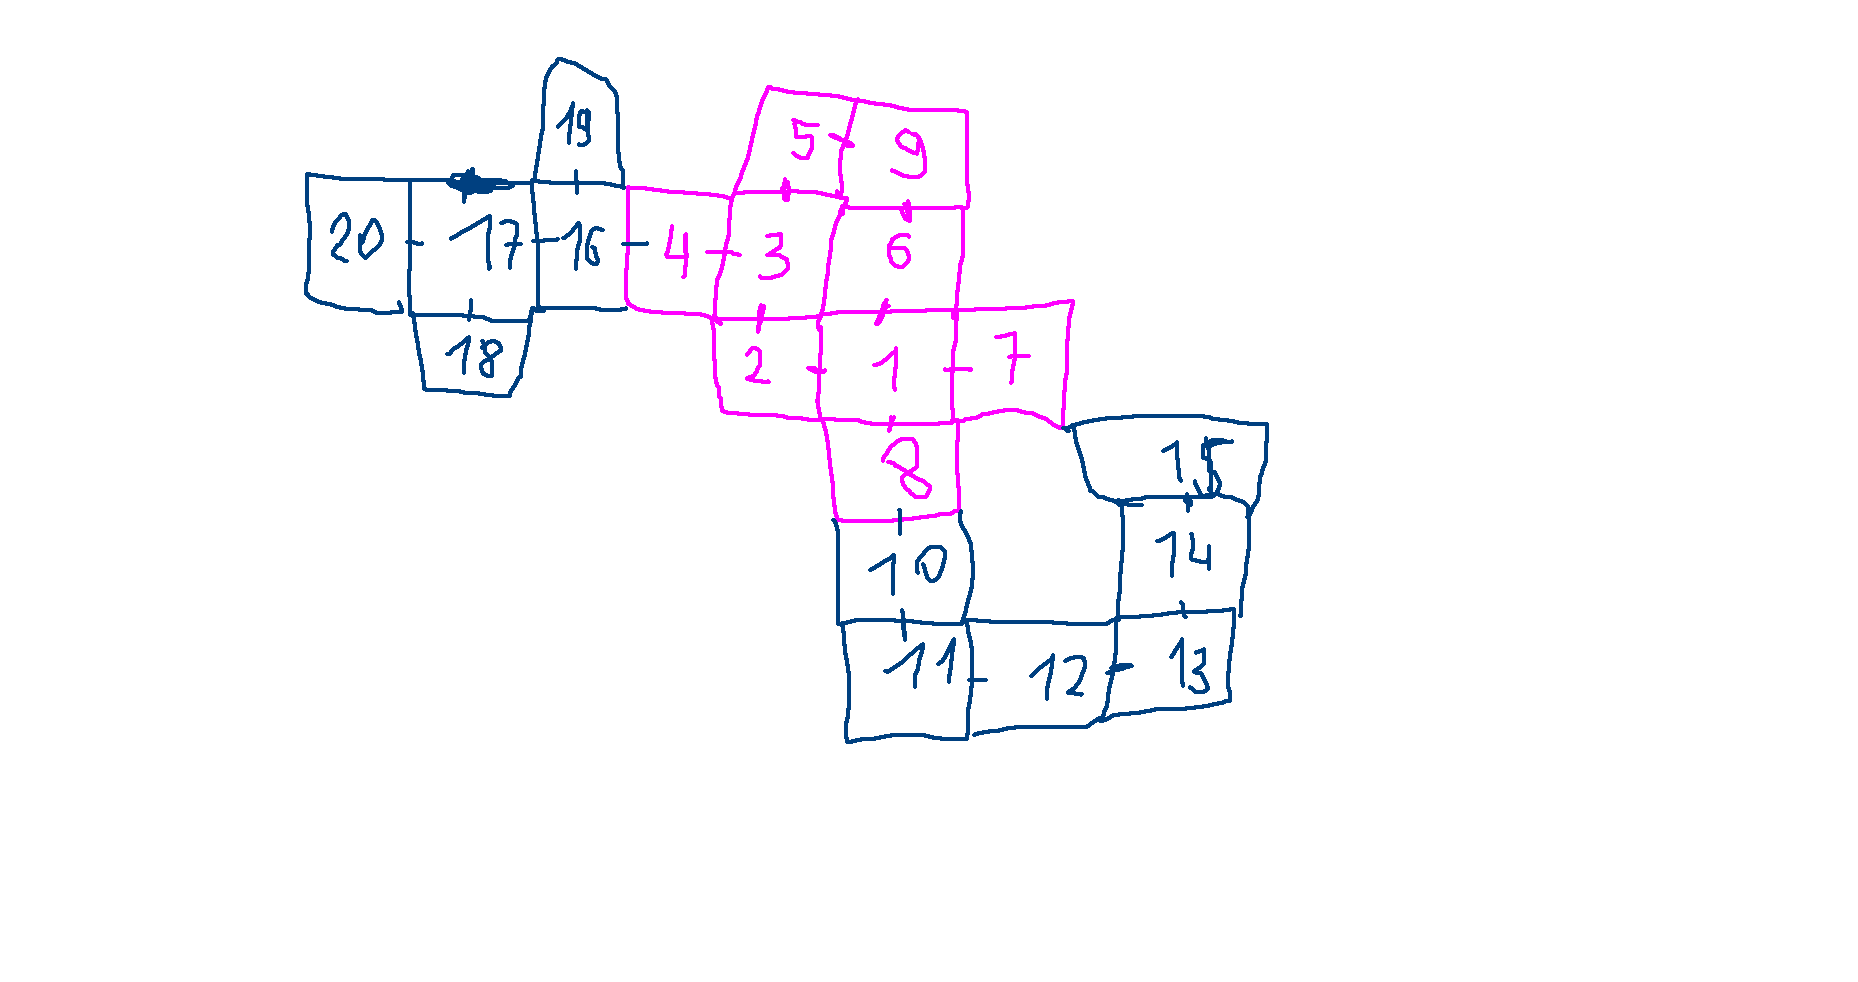 19
5 9
20 17 16 4 3 6
18 2 1 7
8 15
10 14
11 12 13